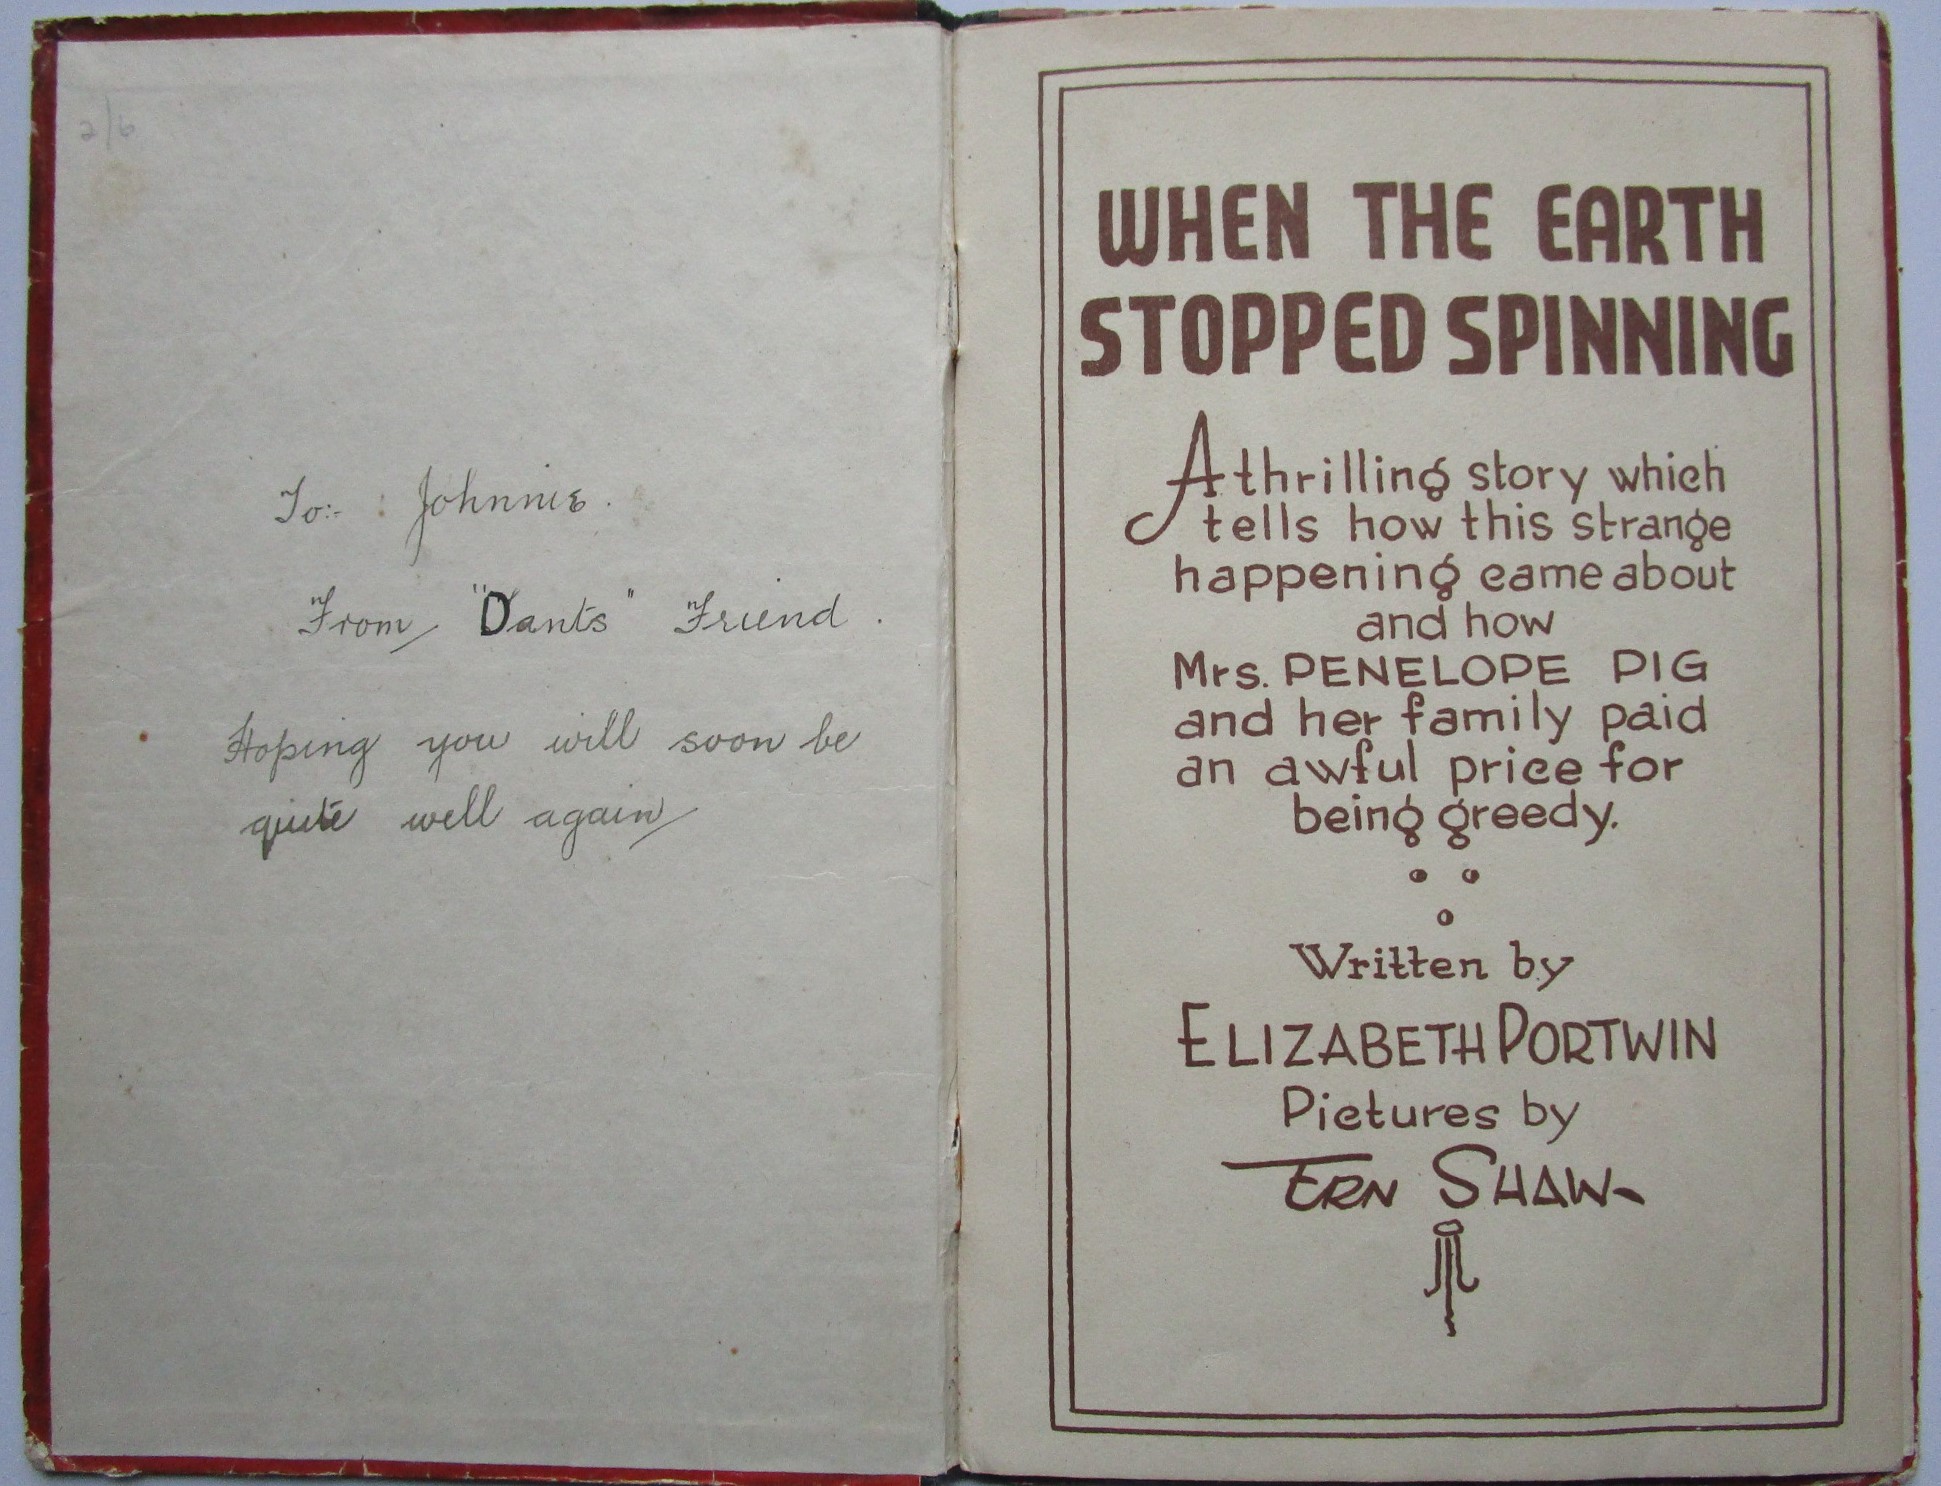 2/6
To:- Johnnie.
From "Dants" Friend.
Hoping you will soon be
quite well again
WHEN THE EARTH
STOPPED SPINNING
A thrilling story which
tells how this strange
happening came about
and how
Mrs. PENELOPE PIG
and her family paid
an awful price for
being greedy.
Written by
ELIZABETH PORTWIN
Pictures by
TERN SHAW